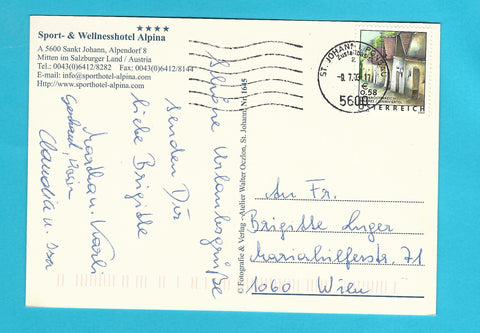 ★★★★
Sport- & Wellnesshotel Alpina
A 5600 Sankt Johann, Alpendorf 8
Mitten im Salzburger Land / Austria
Tel.: 0043(0)6412/8282 Fax: 0043(0)6412/8144
E-mail: info@sporthotel-alpina.com
Http://www.sporthotel-alpina.com
Schöne Urlaubsgrüße
senden Dir
liebe Brigitte
Martha u. Karli
Claudia u.
© Fotografie & Verlag - Atelier Walter Oczlon, St. Johann, Nr 1645
ST. JOHANN I. PONGAU
5600
0.58
ÖSTERREICH
An Fr.
Brigitte Luger
Mariahilferstr. 71
1060 Wien